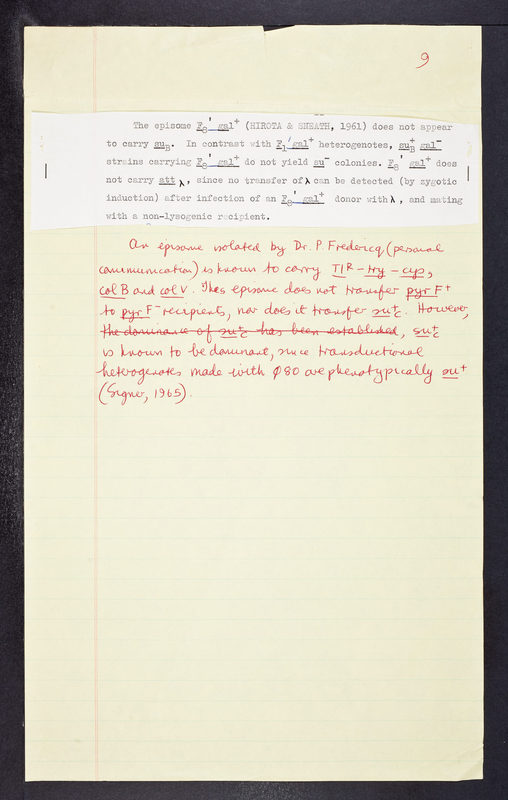 9
The episome F₈' gal⁺ (HIROTA & SNEATH, 1961) does not appear
to carry su_B. In contrast with F₁' gal⁺ heterogenotes, su_B⁺ gal⁻
strains carrying F₈' gal⁺ do not yield su⁻ colonies. F₈' gal⁺ does
not carry att λ, since no transfer of λ can be detected (by zygotic
induction) after infection of an F₈' gal⁺ donor with λ, and mating
with a non-lysogenic recipient.
An episome isolated by Dr. P. Fredericq (personal
communication) is known to carry T1ᴿ - try - cys,
col B and col V. This episome does not transfer pyr F⁺
to pyr F⁻ recipients, nor does it transfer su_C⁺. However,
the dominance of su_C⁺ has been established, su_C⁺
is known to be dominant, since transductional
heterogenotes made with φ80 are phenotypically su⁺
(Signer, 1965).